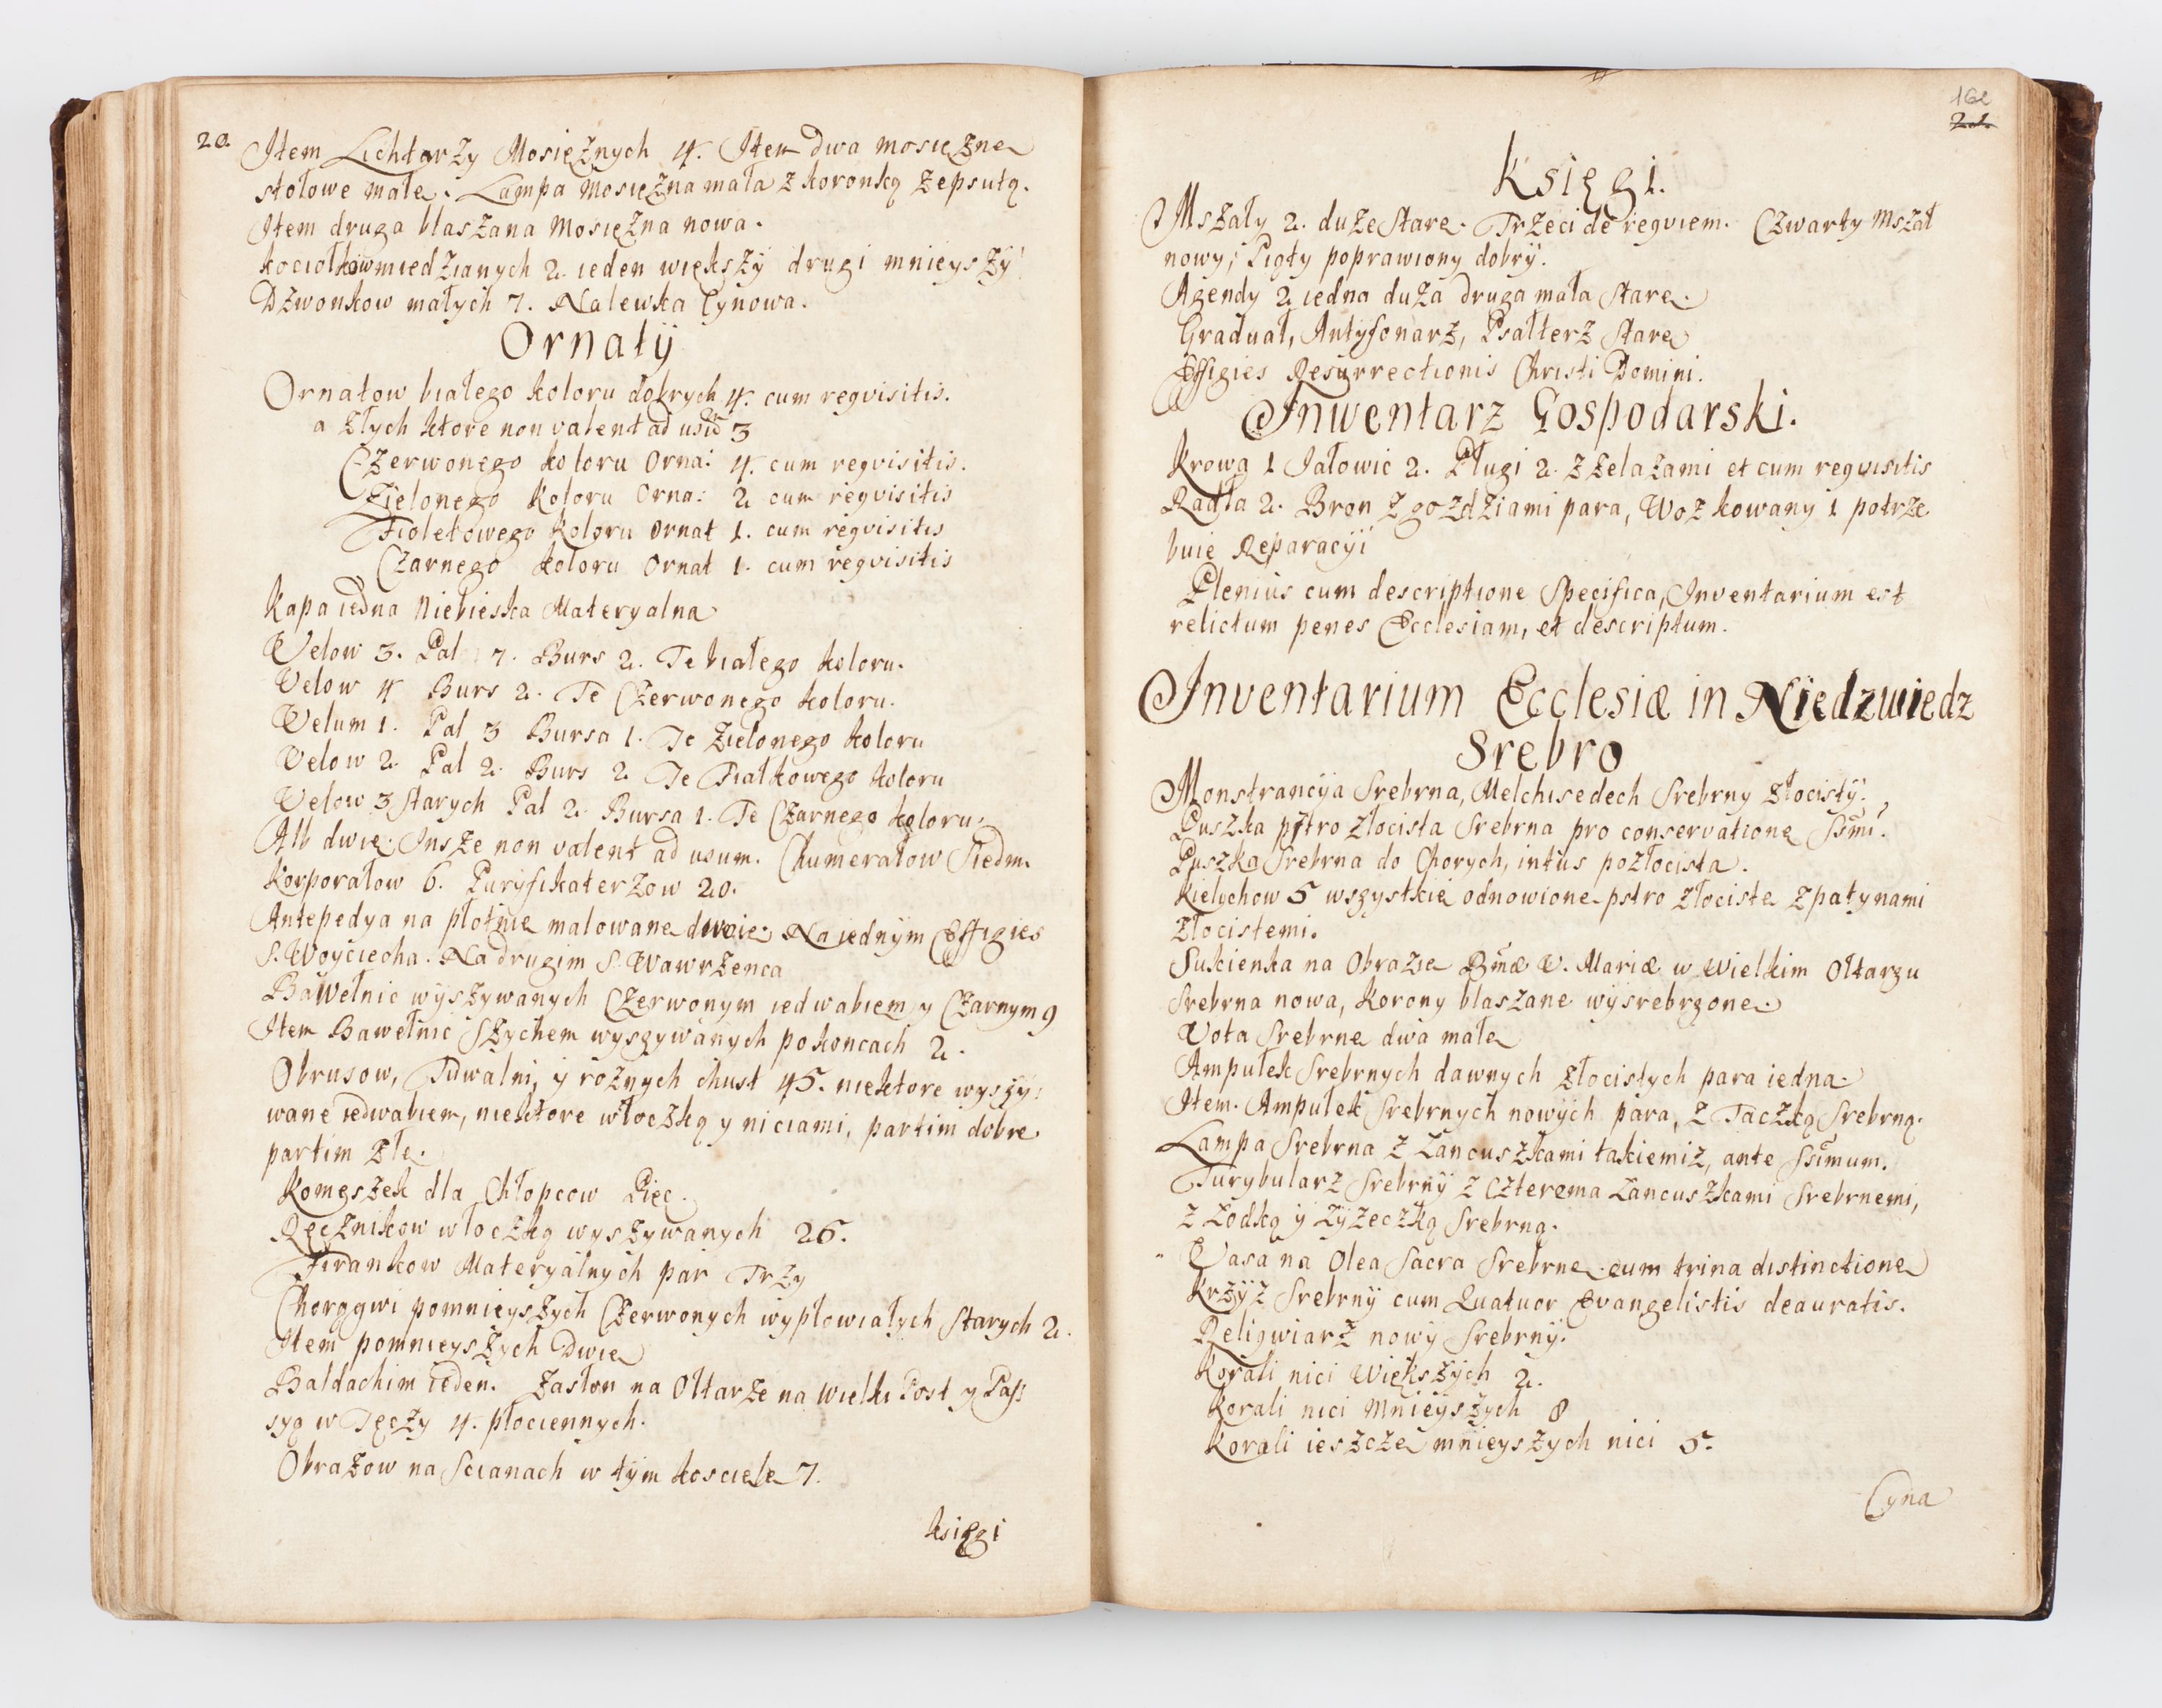 20. Item Lichtarzy Mosiężnych 4. Item dwa mosiężne
stołowe małe. Lampa Mosiężna mała z koronką zepsutą.
Item druga blaszana Mosiężna nowa.
kociołkow miedzianych 2. ieden większÿ drugi mnieyszÿ
Dzwonkow małych 7. Nalewka Cynowa.
Ornatÿ
Ornatow białego koloru dobrych 4. cum reqvisitis.
a złych ktore non valent ad usũ 3
Czerwonego koloru Orna: 4. cum reqvisitis.
Zielonego Koloru Orna: 2 cum reqvisitis
Fioletowego Koloru Ornat 1. cum reqvisitis
Czarnego koloru Ornat 1. cum reqvisitis
Kapa iedna Niebieska Materyalna
Velow 3. Pal 7. Burs 2. Te białego koloru.
Velow 4 Burs 2. Te Czerwonego koloru.
Velum 1. Pal 3 Bursa 1. Te Zielonego koloru
Velow 2. Pal 2. Burs 2 Te Fiałkowego koloru
Velow 3 starych Pal 2. Bursa 1. Te Czarnego koloru.
Alb dwie. Insze non valent ad usum. Chumerałow Siedm.
Korporałow 6. Purÿfikaterzow 20.
Antepedya na płotnie malowane dwoie. Na iednÿm Effigies
S. Woyciecha. Na drugim S. Wawrzenca
Bawełnic wÿszywanych Czerwonym iedwabiem y Czarnym 9
Item Bawełnic Szychem wyszywanych po koncach 2.
Obrusow, Tuwalni, ÿ rożnych chust 45. niektore wyszy:
wane iedwabiem, niektore włoczką y niciami, partim dobre
partim złe.
Komeszek dla Chłopcow Pięc.
Ręcznikow włoczką wyszywanych 26.
Firankow Materyalnych par Trzy
Chorągwi pomnieyszych Czerwonych wypłowiałych Starych 2.
Item pomnieyszych Dwie
Baldachim ieden. Zasłon na Ołtarze na wielki Post y Pas:
syą w Tęczy 4. płociennych.
Obrazow na Scianach w tÿm kosciele 7.
księgi
162
21.
Księgi.
Mszały 2. duże stare. Trzeci de reqviem. Czwarty Mszał
nowy; Piąty poprawiony dobrÿ.
Agendy 2 iedna duża druga mała stare.
Graduał, Antÿfonarz, Psałterz stare
Effigies Resurrectionis Christi Domini.
Inwentarz Gospodarski.
Krowa 1 Jałowic 2. Pługi 2. z żelazami et cum reqvisitis
Radła 2. Bron z gozdziami para, Woz kowany 1 potrze
buie Reparacÿi
Plenius cum descriptione Specifica, Inventarium est
relictum penes Ecclesiam, et descriptum.
Inventarium Ecclesiæ in Niedzwiedz
Srebro
Monstrancÿa Srebrna, Melchisedech Srebrny złocistÿ.
Puszka pstro złocista Srebrna pro conservatione SSmi.
Puszka Srebrna do Chorych, intus pozłocista.
Kielychow 5 wszystkie odnowione pstro złociste z patynami
złocistemi.
Sukienka na Obrazie Bmæ V. Mariæ w Wielkim Ołtarzu
Srebrna nowa, Korony blaszane wÿsrebrzone.
Vota Srebrne dwa małe
Ampułek Srebrnych dawnych złocistych para iedna.
Item. Ampułek Srebrnych nowÿch para, z Taczką Srebrną.
Lampa Srebrna z Łancuszkami takiemiż, ante SSimum.
Turybularz Srebrnÿ z czterema Łancuszkami Srebrnemi,
z Łodką ÿ Łÿżeczką Srebrną.
Vasa na Olea Sacra Srebrne cum trina distinctione
Krzÿż Srebrnÿ cum Quatuor Evangelistis deauratis.
Reliqwiarz nowÿ Srebrnÿ.
Korali nici Większych 2.
Korali nici Mnieyszych 8
Korali ieszcze mnieyszych nici 5.
Cyna